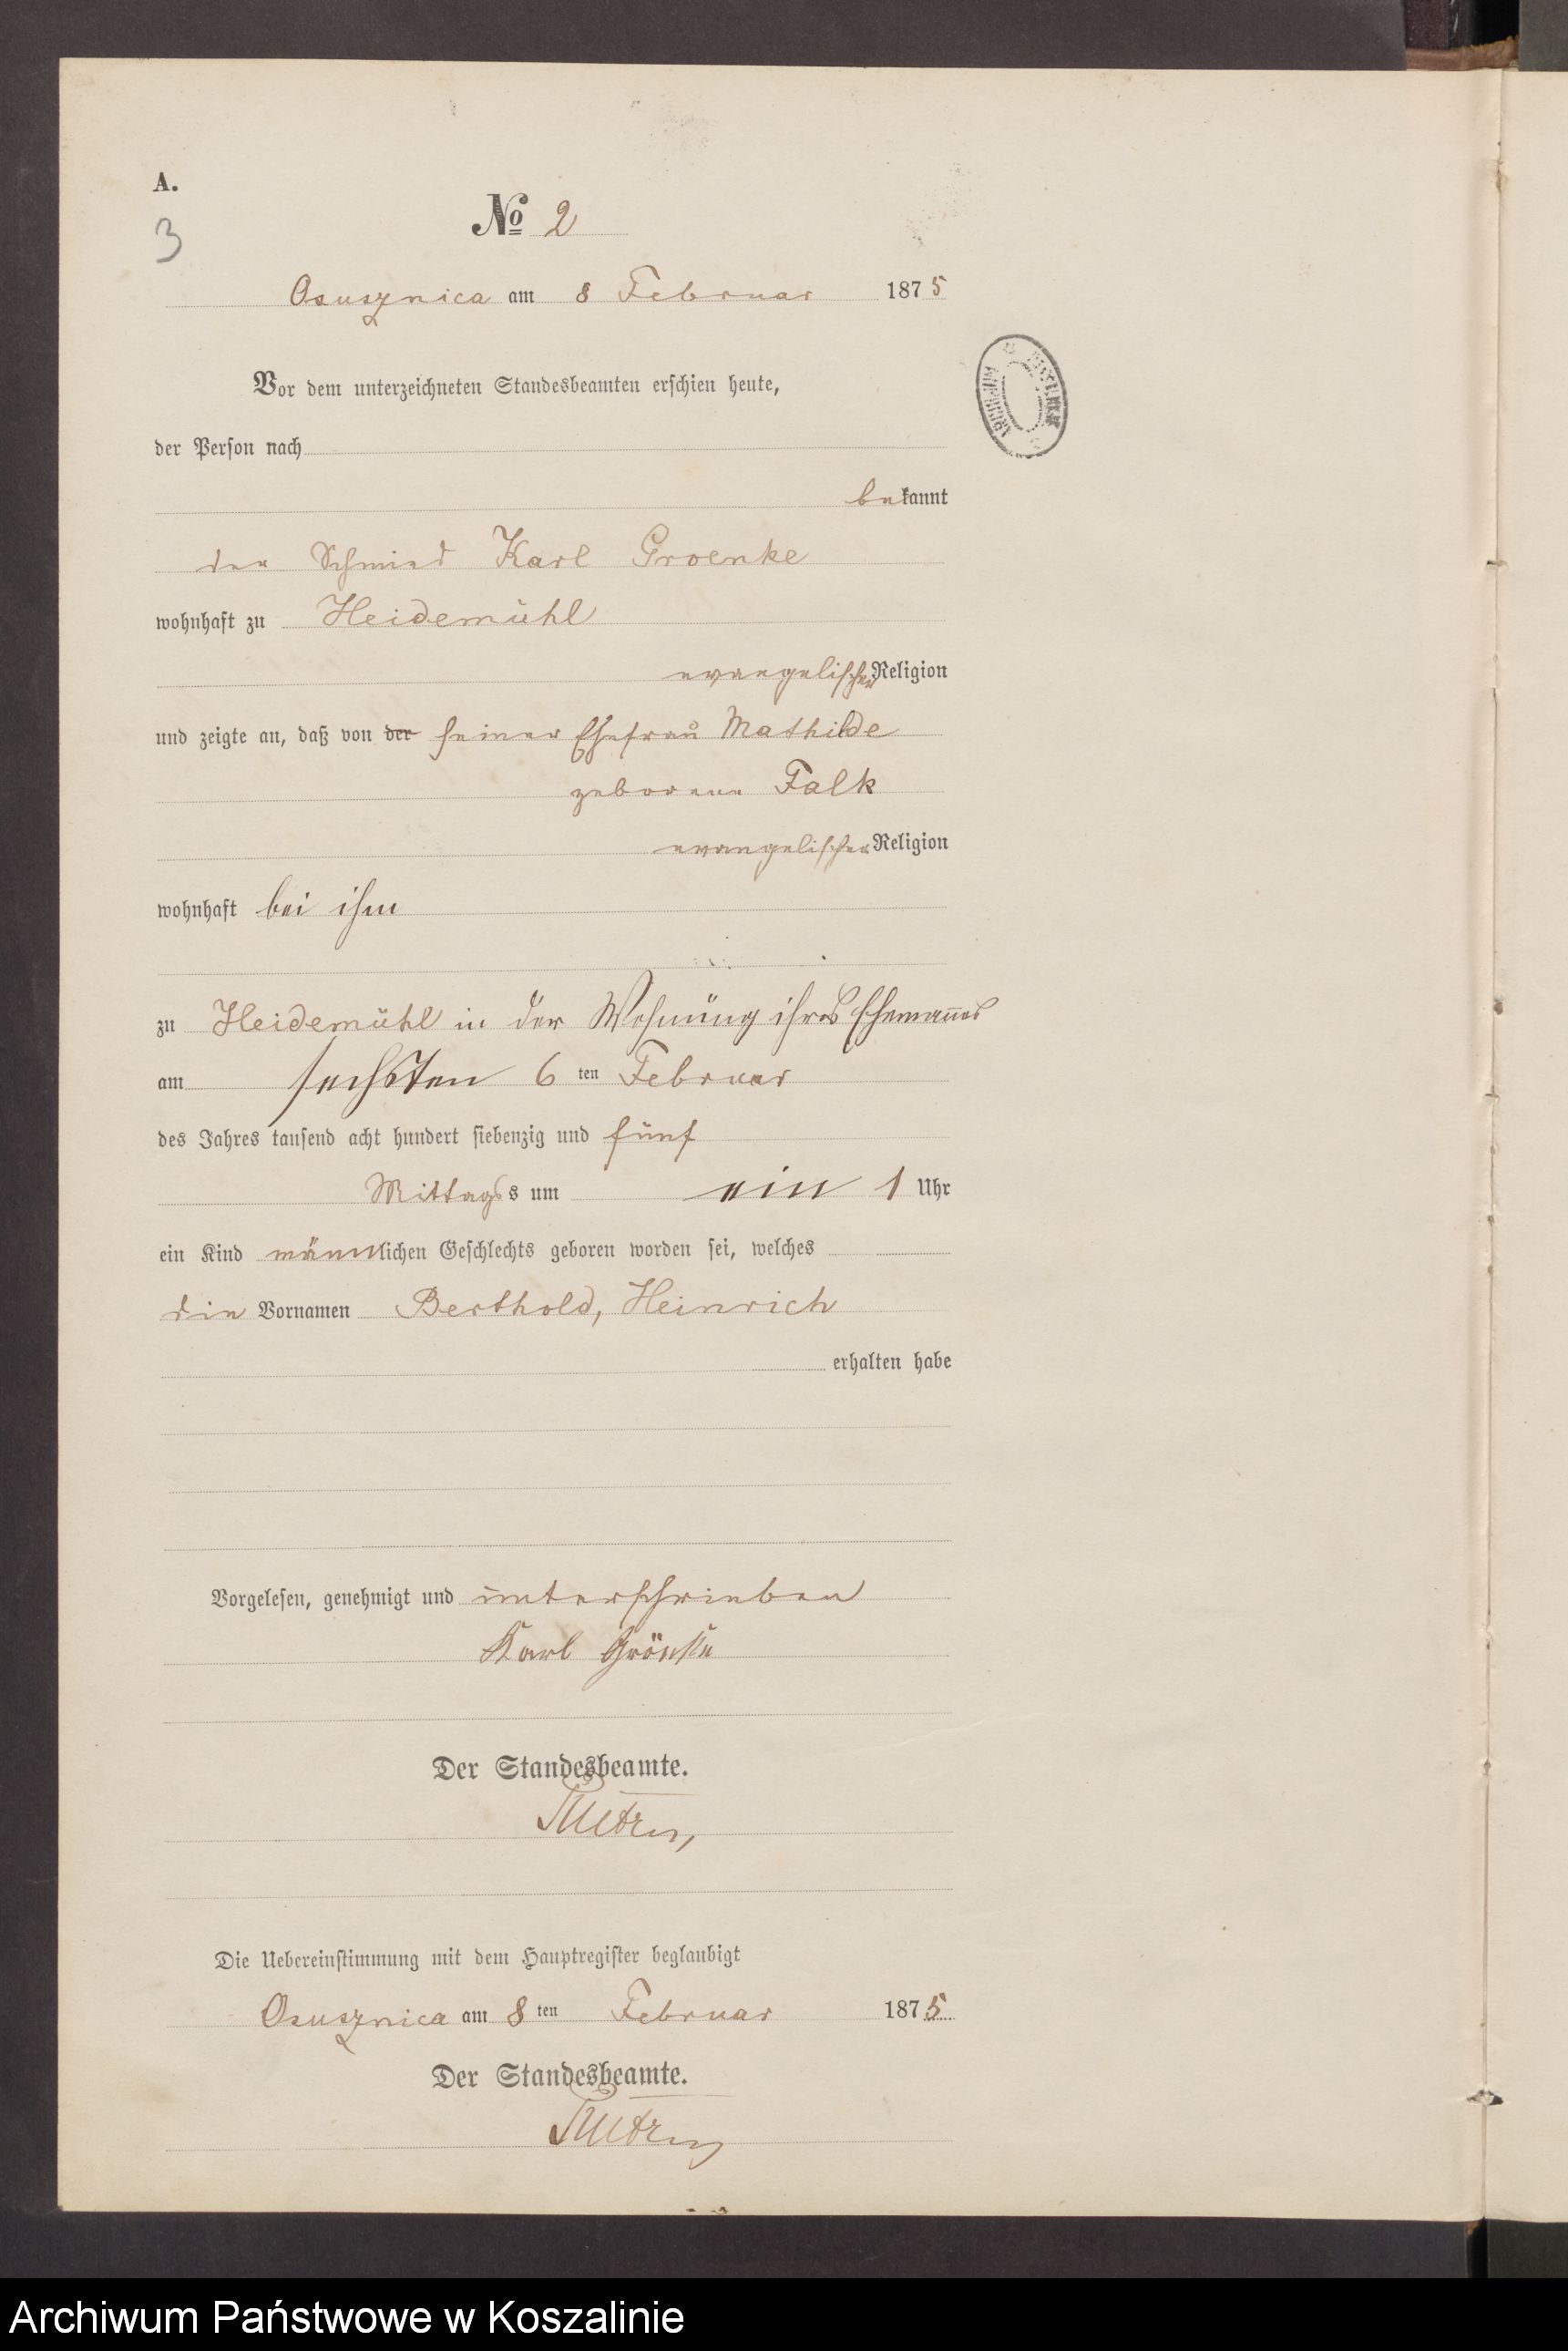 A.
3
No 2
Osusznica am 8 Februar 1875
Vor dem unterzeichneten Standesbeamten erschien heute,
der Person nach
bekannt
der Schmied Karl Groenke
wohnhaft zu Heidemühl
evangelischer Religion
und zeigte an, daß von der seiner Ehefrau Mathilde
geborene Falk
evangelischer Religion
wohnhaft bei ihm
zu Heidemühl in der Wohnung ihres Ehemannes
am sechsten 6 ten Februar
des Jahres tausend acht hundert siebenzig und fünf
Mittags um ein 1 Uhr
ein Kind männlichen Geschlechts geboren worden sei, welches
die Vornamen Berthold, Heinrich
erhalten habe
Vorgelesen, genehmigt und unterschrieben
Karl Grönke
Der Standesbeamte.
Die Uebereinstimmung mit dem Hauptregister beglaubigt
Osusznica am 8 ten Februar 1875
Der Standesbeamte.
Archiwum Państwowe w Koszalinie